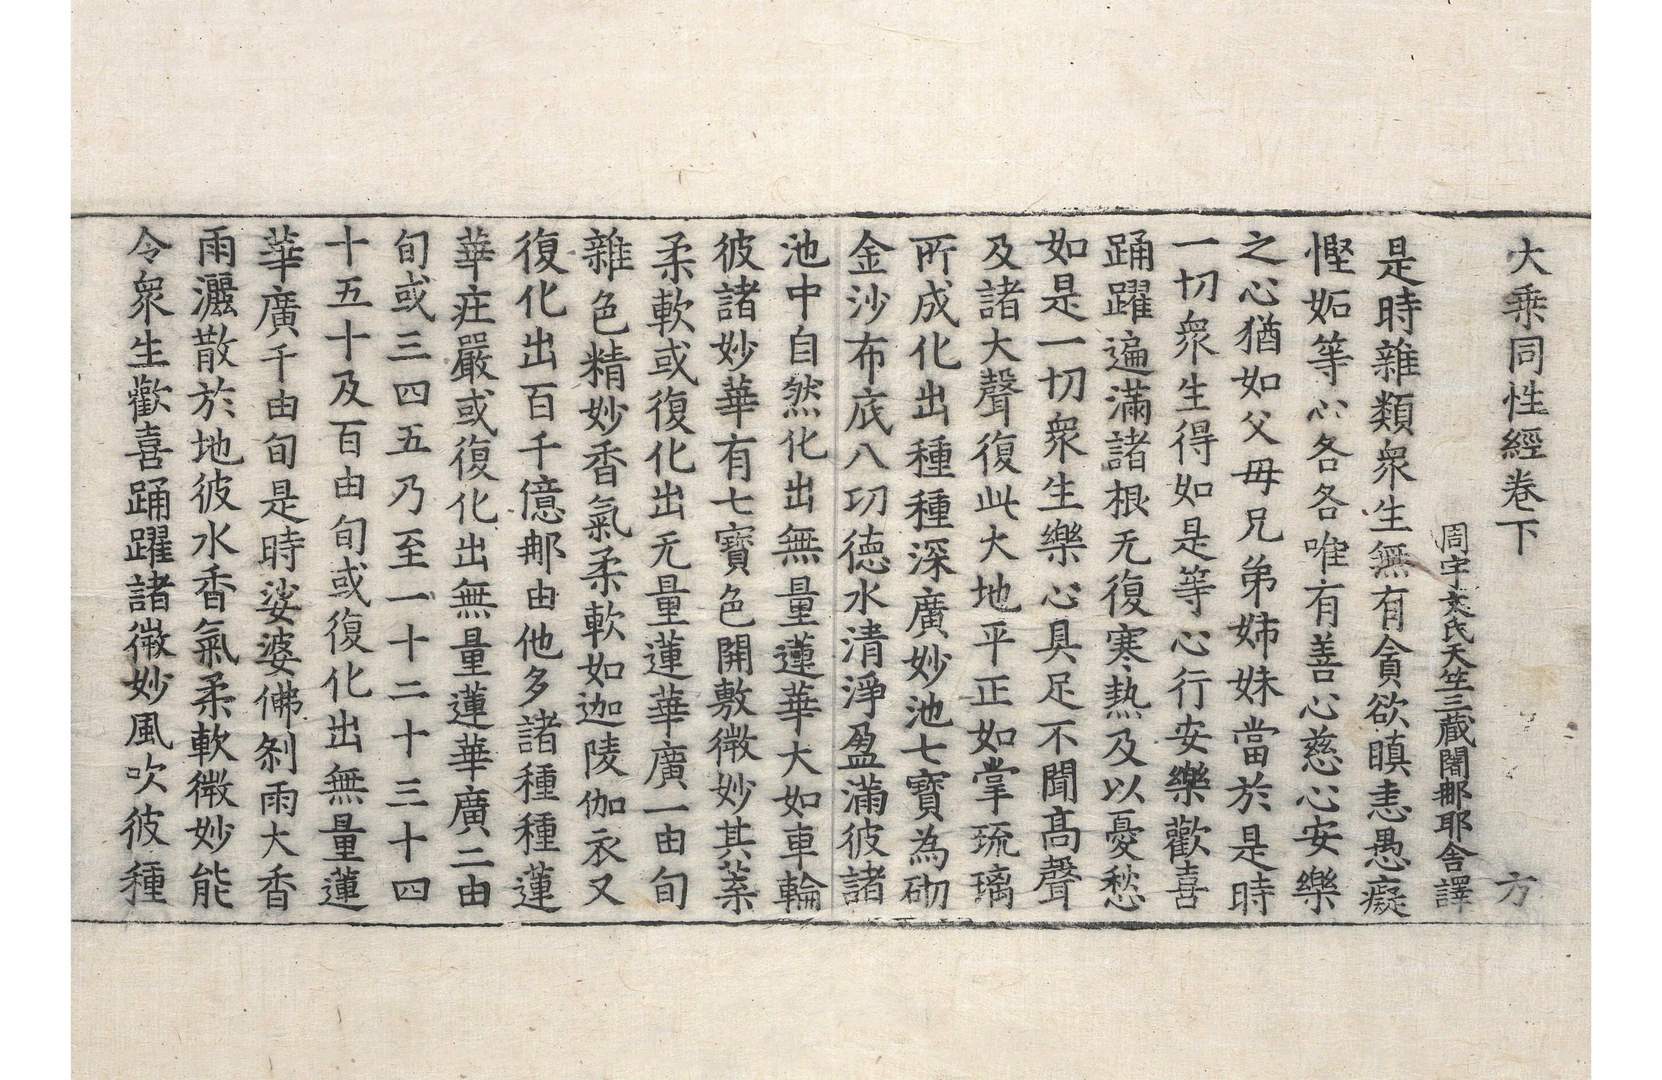 大乘同性經卷下 方
周宇文氏天竺三藏闍那耶舍譯
是時雜類衆生無有貪欲瞋恚愚癡
慳妬等心各各唯有善心慈心安樂
之心猶如父母兄弟姉妹當於是時
一切衆生得如是等心行安樂歡喜
踊躍遍滿諸根无復寒熱及以憂愁
如是一切衆生樂心具足不聞髙聲
及諸大聲復此大地平正如掌琉璃
所成化出種種深廣妙池七寶為砌
金沙布底八功德水清淨盈滿彼諸
池中自然化出無量蓮華大如車輪
彼諸妙華有七寶色開敷微妙其葉
柔軟或復化出无量蓮華廣一由旬
雜色精妙香氣柔軟如迦陵伽衣又
復化出百千億那由他多諸種種蓮
華莊嚴或復化出無量蓮華廣二由
旬或三四五乃至一十二十三十四
十五十及百由旬或復化出無量蓮
華廣千由旬是時娑婆佛刹雨大香
雨灑散於地彼水香氣柔軟微妙能
令衆生歡喜踊躍諸微妙風吹彼種